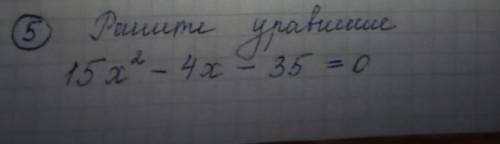 ⑤ Решите уравнение
15x² - 4x - 35 = 0